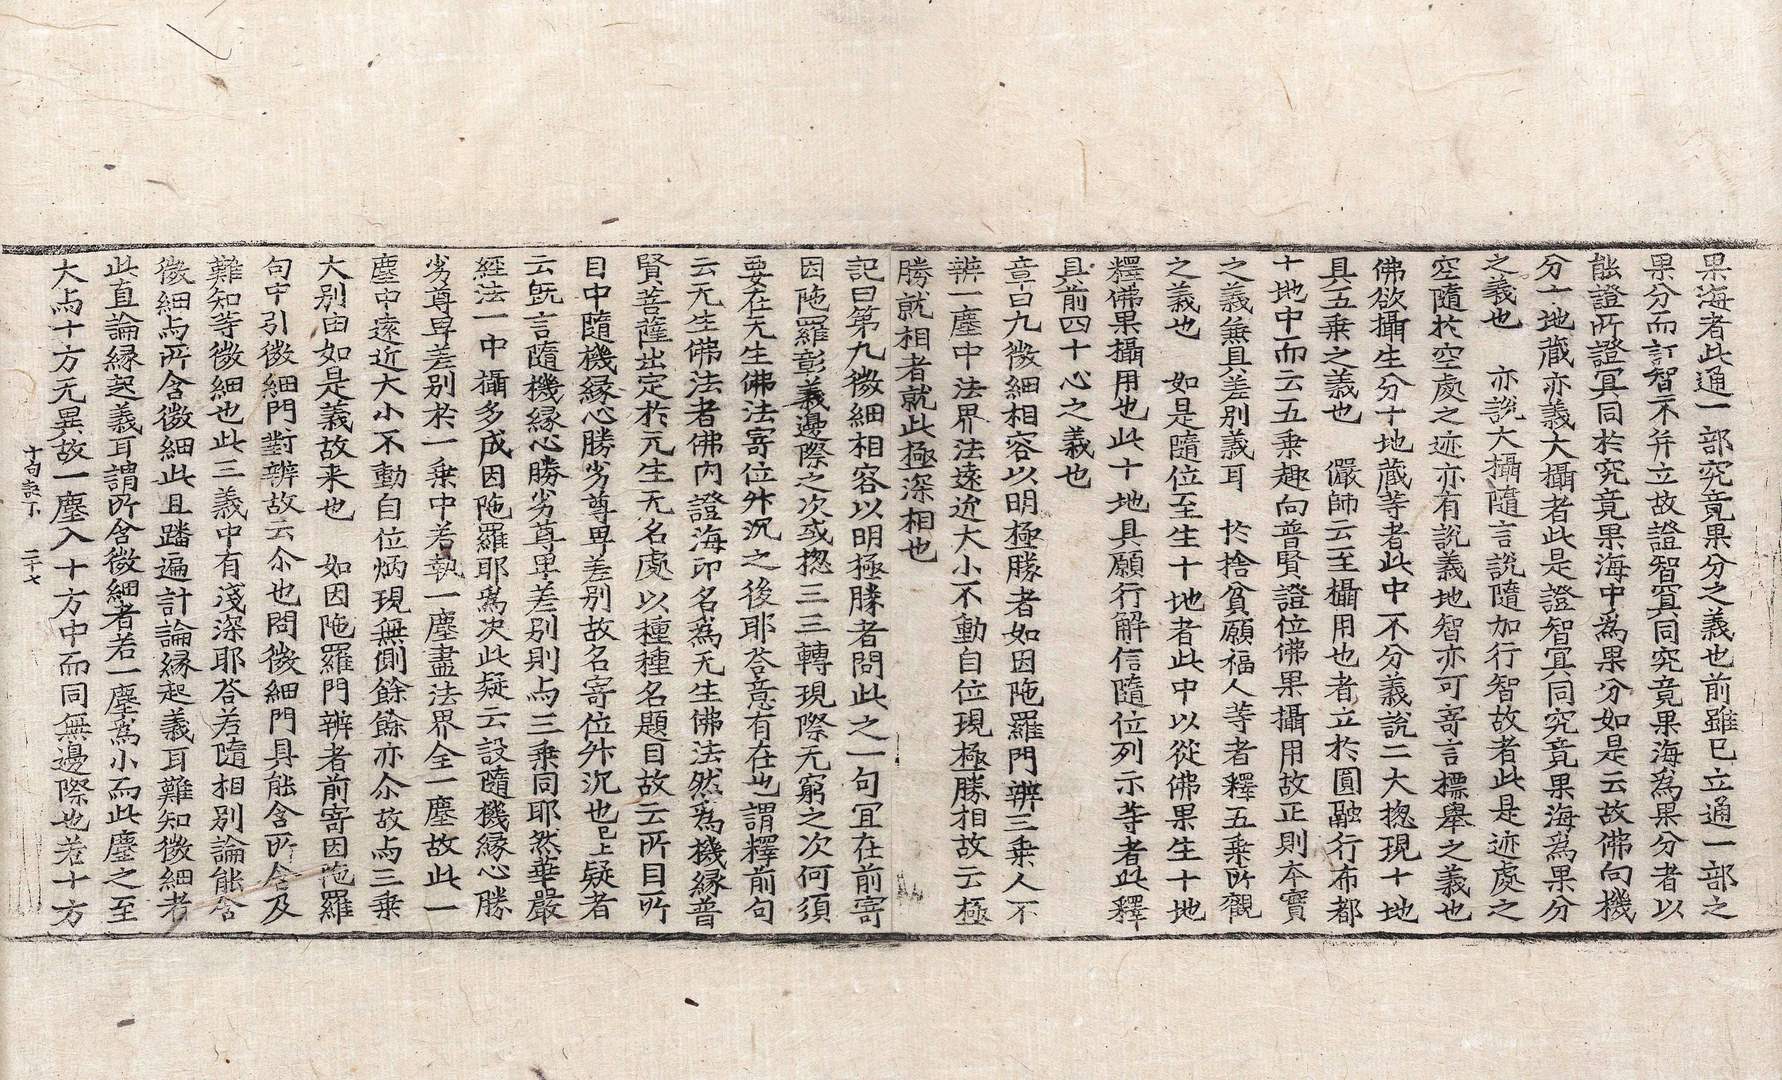 果海者此通一部究竟果分之義也前雖已立通一部之
果分而訂智不弁立故證智冥同究竟果海為果分者以
能證所證冥同於究竟果海中爲果分如是云故佛向機
分十地蔵亦義大攝者此是證智冥同究竟果海為果分
之義也　亦說大攝隨言說隨加行智故者此是迹處之
空隨於空處之迹亦有說義地智亦可寄言標舉之義也
佛欲攝生分十地蔵等者此中不分義說二大揔現十地
具五乗之義也　儼師云至攝用也者立於圓融行布都
十地中而云五乗趣向普賢證位佛果攝用故正則夲實
之義無具差別義耳　於捨貧願福人等者釋五乗所觀
之義也　如是隨位至生十地者此中以從佛果生十地
釋佛果攝用也此十地具願行解信隨位列示等者此釋
具前四十心之義也
章曰九微細相容以明極勝者如因陁羅門辨三乗人不
辨一塵中法界法遠近大小不動自位現極勝相故云極
勝就相者就此極深相也
記曰第九微細相容以明極勝者問此之一句冝在前寄
因陁羅彰義邊際之次或揔三三轉現際无窮之次何須
要在无生佛法寄位外沉之後耶荅意有在也謂釋前句
云无生佛法者佛內證海印名爲无生佛法然爲機縁普
賢菩薩出定於无生无名處以種種名題目故云所目所
目中隨機縁心勝劣尊卑差别故名寄位外沉也已上疑者
云旣言隨機縁心勝劣尊卑差别則与三乗同耶然華嚴
經法一中攝多成因陁羅耶爲决此疑云設隨機縁心勝
劣尊卑差别於一乗中若執一塵盡法界全一塵故此一
塵中遠近大小不動自位炳現無側餘餘亦尒故与三乗
大别由如是義故来也　如因陁羅門辨者前寄因陁羅
句中引微細門對辨故云尒也問微細門具能含所含及
難知等微細也此三義中有淺深耶荅若隨相别論能含
微細与所含微細此且䠣遍計論縁起義耳難知微細者
此直論縁起義耳謂所含微細者若一塵爲小而此塵之至
大与十方无異故一塵入十方中而同無邊際也若十方
十句記下　二十七